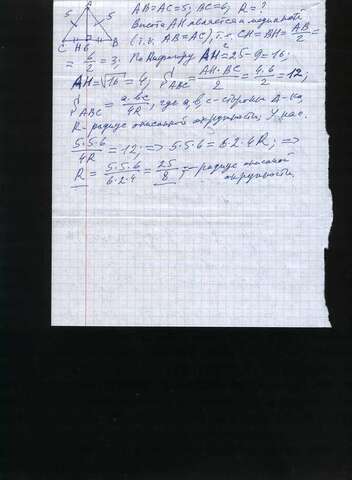 A
5 5
C H 6 B
AB=AC=5; BC=6, R=?
Высота AH является и медианой
(т.к. AB=AC), т.е. CH=BH= AB/2 =
= 6/2 = 3; По Пифагору AH²=25-9=16;
AH=√16=4; S ABC = AH·BC/2 = 4·6/2 = 12;
S ABC = a·b·c/4R, где a, b, c - стороны Δ-ка,
R- радиус описанной окружности; У нас:
5·5·6/4R = 12; => 5·5·6 = 6·2·4R; =>
R = 5·5·6/6·2·4 = 25/8; - радиус описаной
окружности.